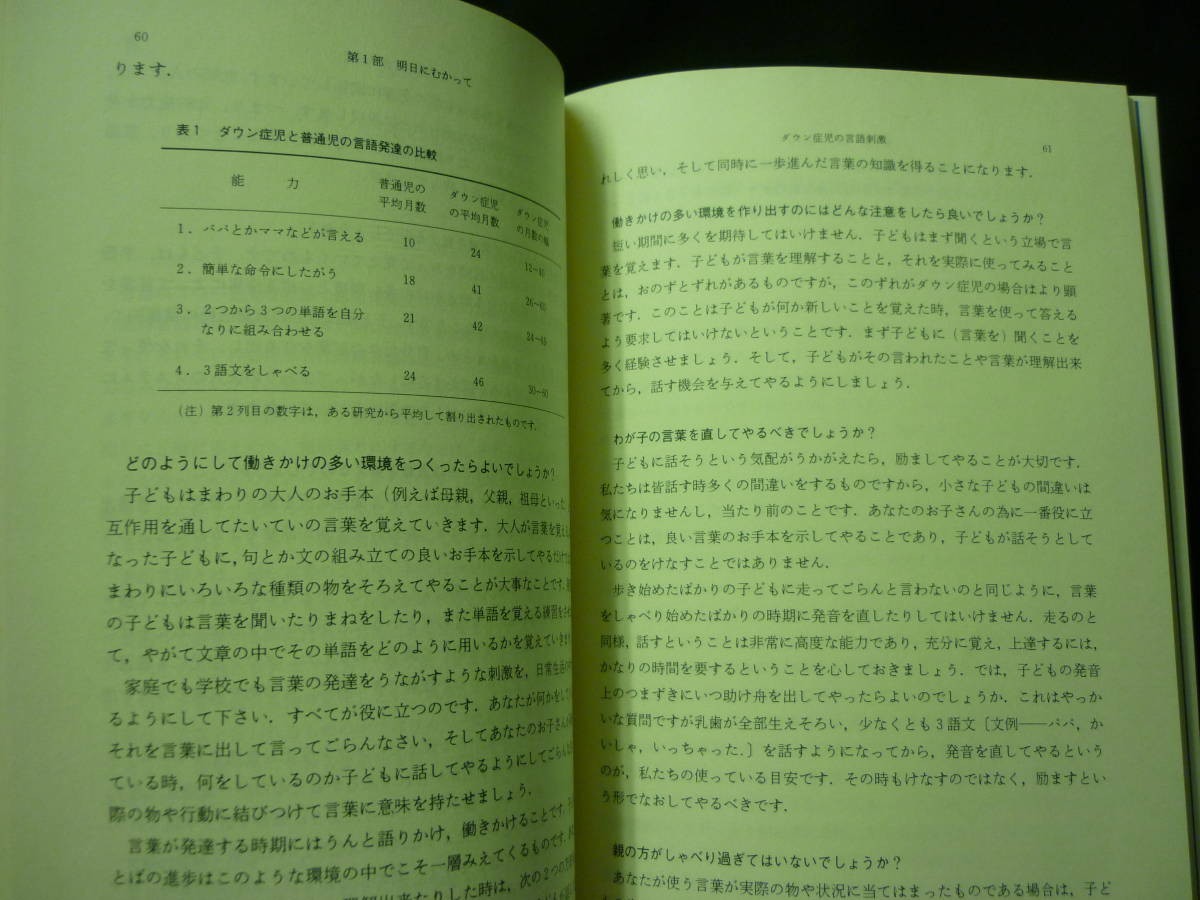 60
第1部 明日にむかって
ります.
表1 ダウン症児と普通児の言語発達の比較
能 力 普通児の平均月数 ダウン症児の平均月数 ダウン症児の月数の幅
1. パパとかママなどが言える 10 24
2. 簡単な命令にしたがう 18 41
3. 2つから3つの単語を自分なりに組み合わせる 21 42
4. 3語文をしゃべる 24 46
(注) 第2列目の数字は, ある研究から平均して割り出されたものです.
どのようにして働きかけの多い環境をつくったらよいでしょうか?
子どもはまわりの大人のお手本(例えば母親, 父親, 祖母といった
互作用を通してたいていの言葉を覚えていきます. 大人が言葉を覚え
なった子どもに, 句とか文の組み立ての良いお手本を示してやるだけ
まわりにいろいろな種類の物をそろえてやることが大事なことです.
の子どもは言葉を聞いたりまねをしたり, また単語を覚える練習を
て, やがて文章の中でその単語をどのように用いるかを覚えていきま
家庭でも学校でも言葉の発達をうながすような刺激を, 日常生活
るようにして下さい. すべてが役に立つのです. あなたが何かをし
それを言葉に出して言ってごらんなさい, そしてあなたのお子さんが
ている時, 何をしているのか子どもに話してやるようにしてごらん
際の物や行動に結びつけて言葉に意味を持たせましょう.
言葉が発達する時期にはうんと語りかけ, 働きかけることです.
とばの進歩はこのような環境の中でこそ一層みえてくるものです.
りした時は, 次の2つの
ダウン症児の言語刺激
61
れしく思い, そして同時に一歩進んだ言葉の知識を得ることになります.
働きかけの多い環境を作り出すのにはどんな注意をしたら良いでしょうか?
短い期間に多くを期待してはいけません. 子どもはまず聞くという立場で言
葉を覚えます. 子どもが言葉を理解することと, それを実際に使ってみること
とは, おのずとずれがあるものですが, このずれがダウン症児の場合はより顕
著です. このことは子どもが何か新しいことを覚えた時, 言葉を使って答える
よう要求してはいけないということです. まず子どもに(言葉を)聞くことを
多く経験させましょう. そして, 子どもがその言われたことや言葉が理解出来
てから, 話す機会を与えてやるようにしましょう.
わが子の言葉を直してやるべきでしょうか?
子どもに話そうという気配がうかがえたら, 励ましてやることが大切です.
私たちは皆話す時多くの間違いをするものですから, 小さな子どもの間違いは
気になりませんし, 当たり前のことです. あなたのお子さんの為に一番役に立
つことは, 良い言葉のお手本を示してやることであり, 子どもが話そうとして
いるのをけなすことではありません.
歩き始めたばかりの子どもに走ってごらんと言わないのと同じように, 言葉
をしゃべり始めたばかりの時期に発音を直したりしてはいけません. 走るのと
同様, 話すということは非常に高度な能力であり, 充分に覚え, 上達するには,
かなりの時間を要するということを心しておきましょう. では, 子どもの発音
上のつまずきにいつ助け舟を出してやったらよいのでしょうか. これはやっか
いな質問ですが乳歯が全部生えそろい, 少なくとも3語文〔文例――パパ, か
いしゃ, いっちゃった.〕を話すようになってから, 発音を直してやるという
のが, 私たちの使っている目安です. その時もけなすのではなく, 励ますとい
う形でなおしてやるべきです.
親の方がしゃべり過ぎてはいないでしょうか?
あなたが使う言葉が実際の物や状況に当てはまったものである場合は, 子ど